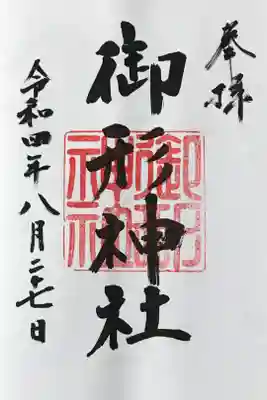 奉拝
御形神社
御形神社
令和四年八月二十七日